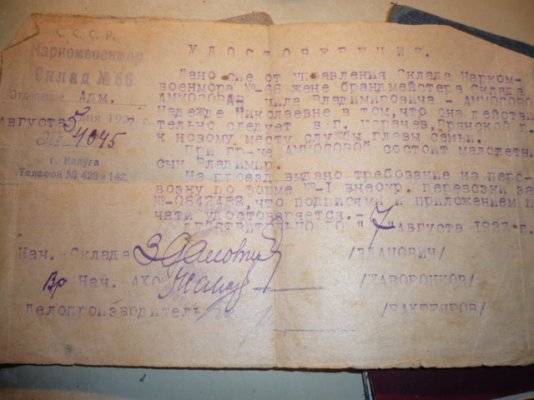 С.С.С.Р.
Наркомвоенмор
Склад №66
Отделение Адм.
Августа 5 дня 1927 г.
№ 4045
г. Калуга
Телефон № 428 и 142.
УДОСТОВЕРЕНИЕ.
Дано сие от управления Склада Нарком-
военмора № 66 жене брандмейстера Склада
АМОСОВА Владимировича - АМОСОВОЙ
Надежде Николаевне в том, что она действи
тельно следует в г. Брянской г.
к новому месту службы главы семьи.
При гр-ке АМОСОВОЙ состоит малолетн
сын Владимир.
На проезд выдано требование на пере
возку по форме №-1 внеочр. перевозки за
№-0542452, что подписями и приложением п
чати удостоверяется.-
ДЕЙСТВИТЕЛЬНО ПО "7" Августа 1927 г.
Нач. Склада /ЗДАНОВИЧ/
Вр Нач. АХО /ЖАВОРОНКОВ/
Делопроизводитель